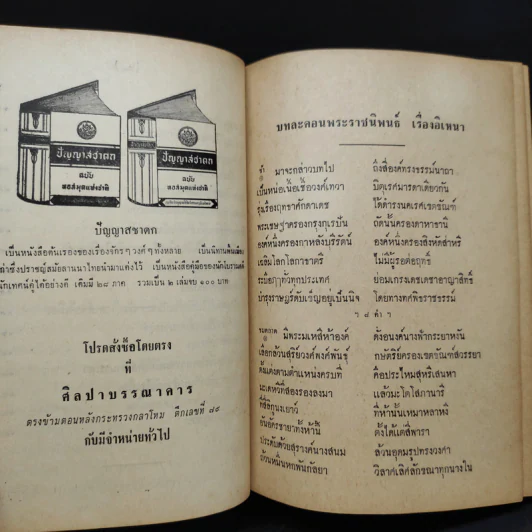 ปัญญาสชาดก
ฉบับ
หอสมุดแห่งชาติ
ปัญญาสชาดก
ฉบับ
หอสมุดแห่งชาติ
ปัญญาสชาดก
เป็นหนังสือต้นเรื่องของเรื่องจักร ๆ วงศ์ ๆ ทั้งหลาย เป็นนิทานพื้นเมือง
เก่าซึ่งปราชญ์สมัยลานนาไทยนำมาแต่งไว้ เป็นหนังสือคู่มือของนักโบราณคดี
นักเทศน์คู่ได้อย่างดี เดิมมี ๒๘ ภาค รวมเป็น ๒ เล่มจบ ๑๐๐ บาท
โปรดสั่งซื้อโดยตรง
ที่
ศิลปาบรรณาคาร
ตรงข้ามตอนหลังกระทรวงกลาโหม ตึกเลขที่ ๗๘
กับมีจำหน่ายทั่วไป
บทละคอนพระราชนิพนธ์ เรื่องอิเหนา
ช้า มาจะกล่าวบทไป ถึงสี่องค์ทรงธรรม์นาถา
เป็นหน่อเนื้อเชื้อวงศ์เทวา บิตุเรศมารดาเดียวกัน
รุ่งเรืองฤทธาศักดาเดช ได้ดำรงนคเรศเขตขัณฑ์
พระเชษฐาครองกรุงกุเรปัน ถัดนั้นครองดาหาธานี
องค์หนึ่งครองกาหลังบุรีรัตน์ องค์หนึ่งครองสิงหัดส่าหรี
เฉลิมโลกโลกาธาตรี ไม่มีผู้รอต่อฤทธิ์
ระบือฦาทั่วทุกประเทศ ย่อมเกรงเดชเดชาอาญาสิทธิ์
บำรุงราษฎร์ดับเข็ญอยู่เป็นนิจ โดยทางทศพิธราชธรรม์
ฯ ๘ คำ ฯ
มีพระมเหสีห้าองค์ ดั่งอนงค์นางฟ้ากระยาหงัน
เลือกล้วนสุริย์วงศ์พงศ์พันธุ์ กษัตริย์ครองเขตขัณฑ์สวรรยา
ตั้งแต่งตามตำแหน่งครบที่ คือประไหมสุหรีเสนหา
มะเดหวีที่สองรองลงมา แล้วมะโตโสภานารี
ที่สี่ลิกูนงเยาว์ ที่ห้านั้นเหมาหลาหงี
ตั้งได้แต่สี่พารา
ประดับด้วยสุรางค์นางสนม ล้วนอุดมรูปทรงวงศา
วิลาศเลิศลักขณาทุกนางใน